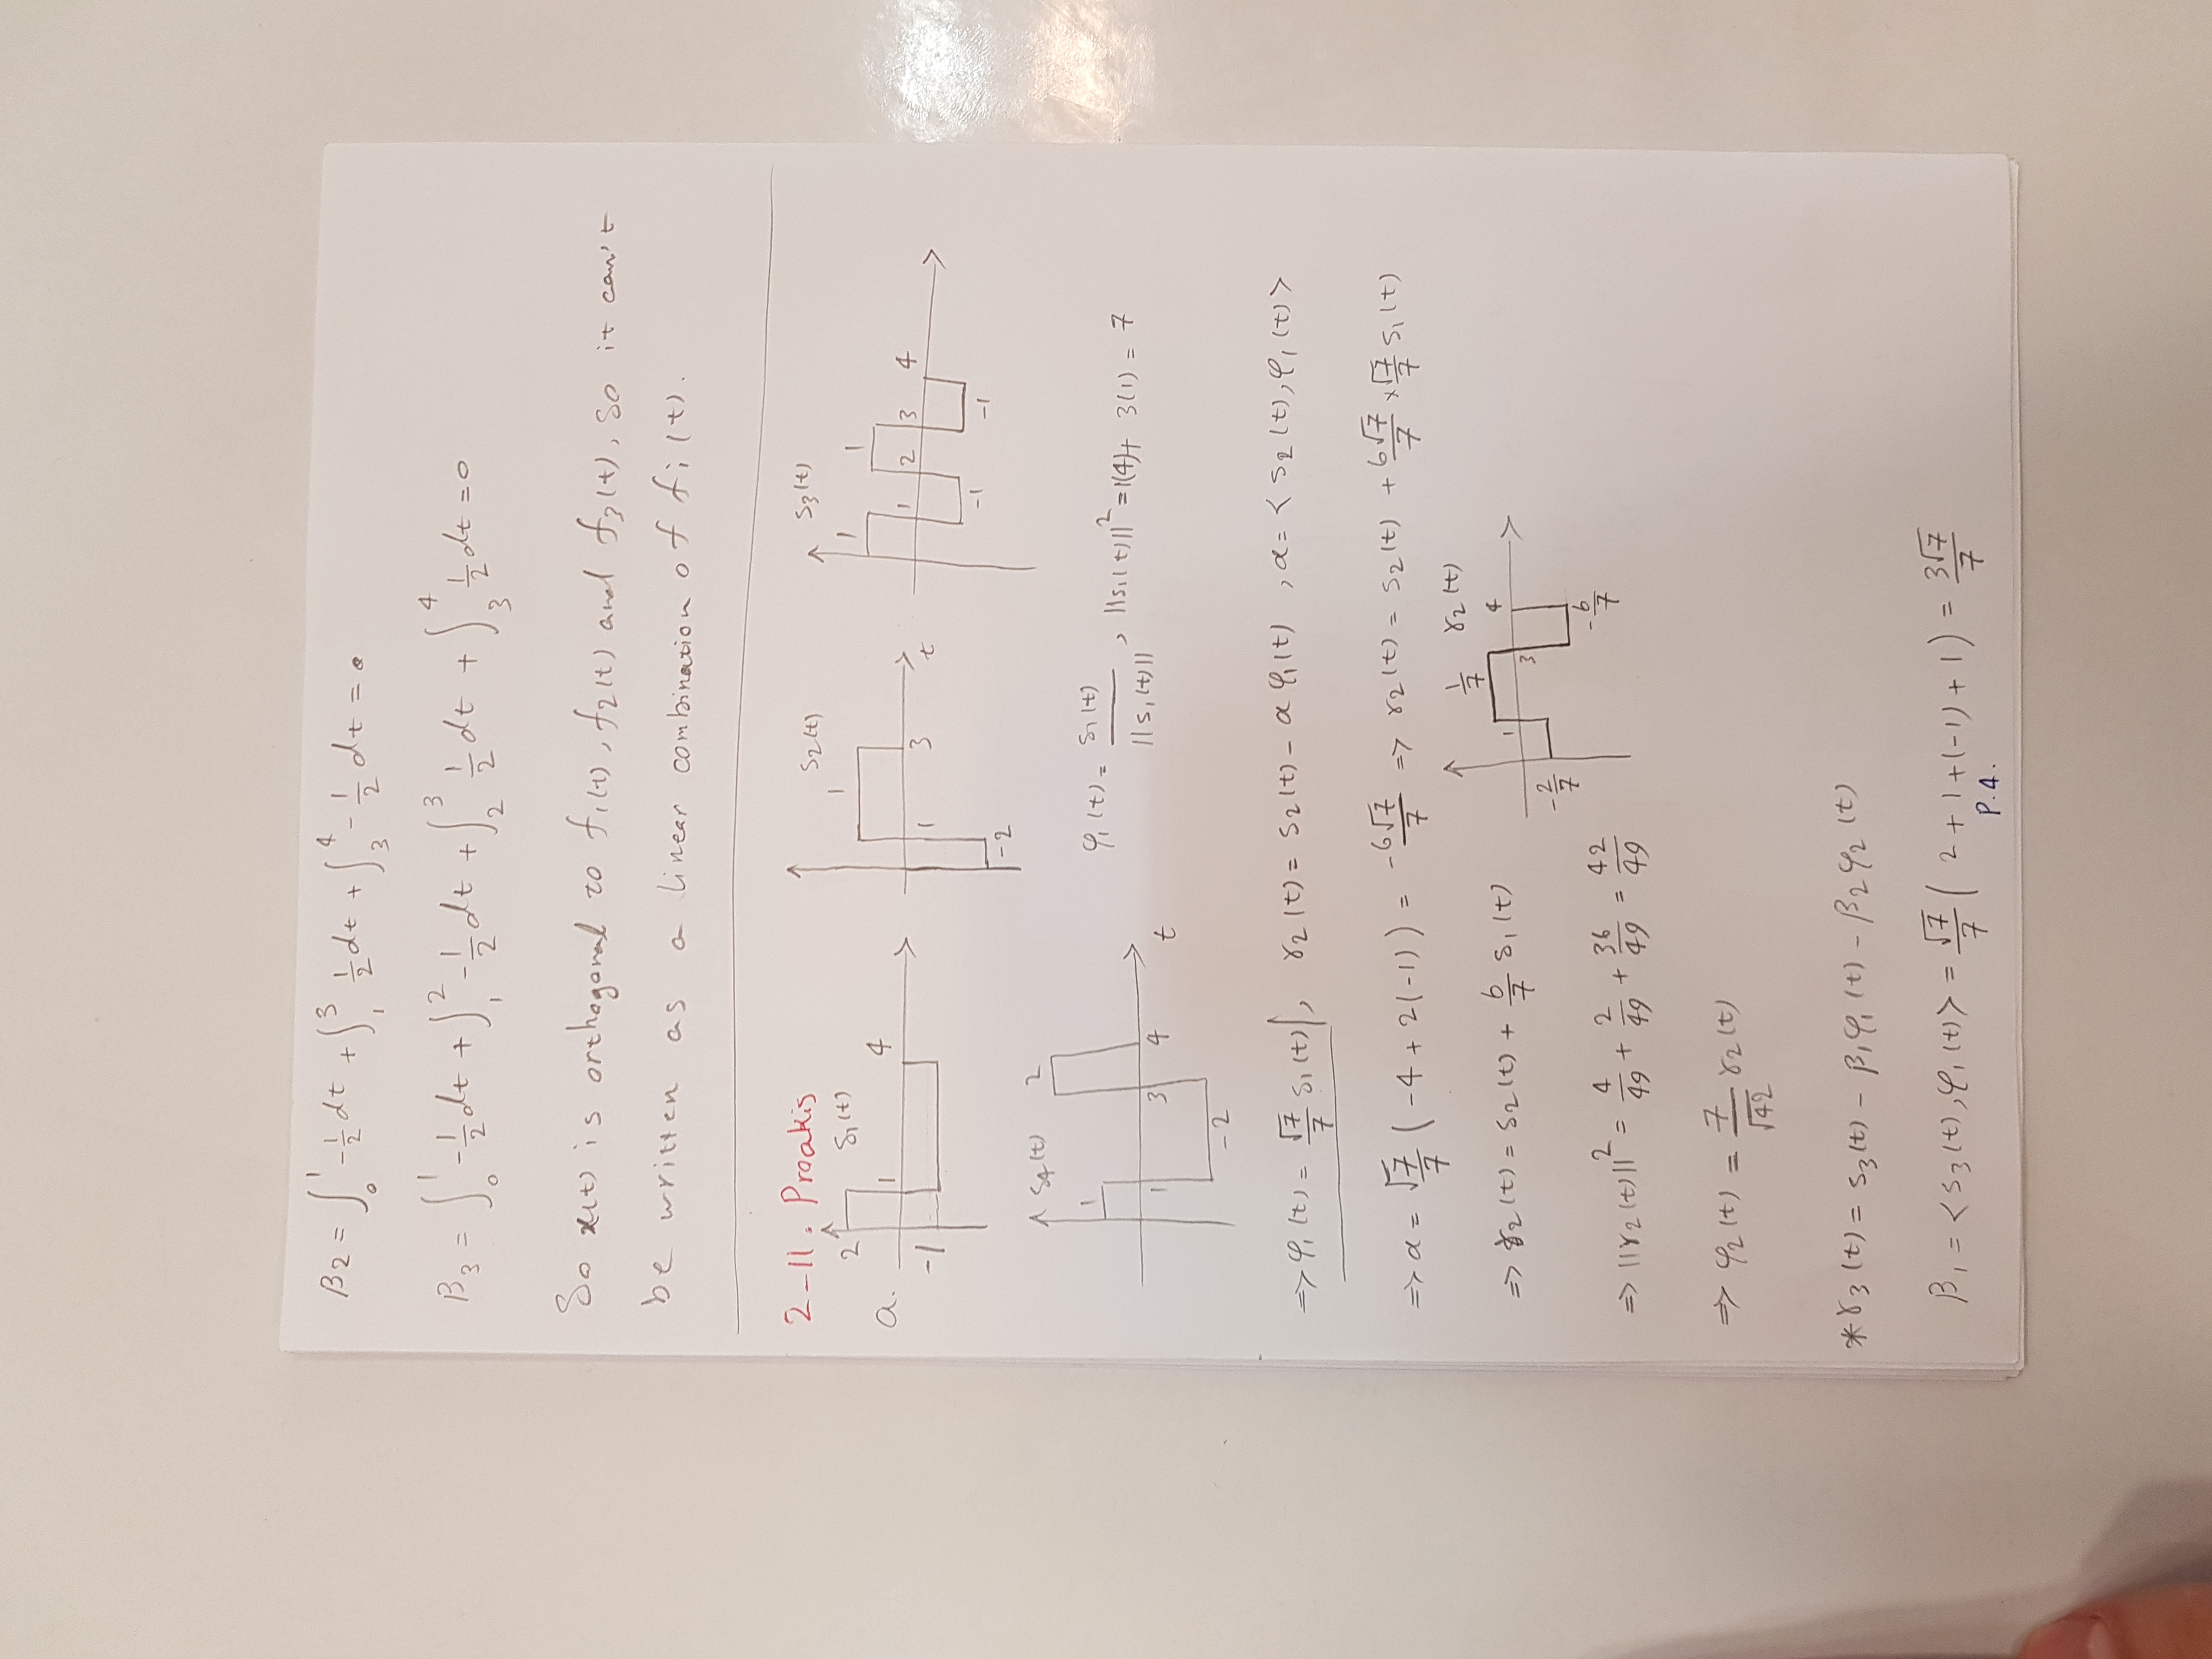 β2 = ∫₀¹ -1/2 dt + ∫₁³ 1/2 dt + ∫₃⁴ -1/2 dt = 0
β₃ = ∫₀¹ -1/2 dt + ∫₁² -1/2 dt + ∫₂³ 1/2 dt + ∫₃⁴ 1/2 dt = 0
So x(t) is orthogonal to f₁(t), f₂(t) and f₃(t), so it can't
be written as a linear combination of fi(t).
2-11. Proakis
a.
2 S₁(t) 1 4 -1
S₂(t) 1 1 3 t -2
S₃(t) 1 1 1 2 3 4 -1 -1
S₄(t) 2 1 1 3 4 t -2
φ₁(t) = S₁(t)/||S₁(t)||, ||S₁(t)||² = 1(4) + 3(1) = 7
=> φ₁(t) = √7/7 S₁(t), γ₂(t) = S₂(t) - α φ₁(t), α = <S₂(t), φ₁(t)>
=> α = √7/7 (-4 + 2(-1)) = -6√7/7 => γ₂(t) = S₂(t) + 6√7/7 × √7/7 S₁(t)
=> γ₂(t) = S₂(t) + 6/7 S₁(t)
1/7 γ₂(t) 1 3 4 -2/7 -6/7
=> ||γ₂(t)||² = 4/49 + 2/49 + 36/49 = 42/49
=> φ₂(t) = 7/√42 γ₂(t)
*γ₃(t) = S₃(t) - β₁φ₁(t) - β₂φ₂(t)
β₁ = <S₃(t), φ₁(t)> = √7/7 (2 + 1 + (-1) + 1) = 3√7/7
P.4.